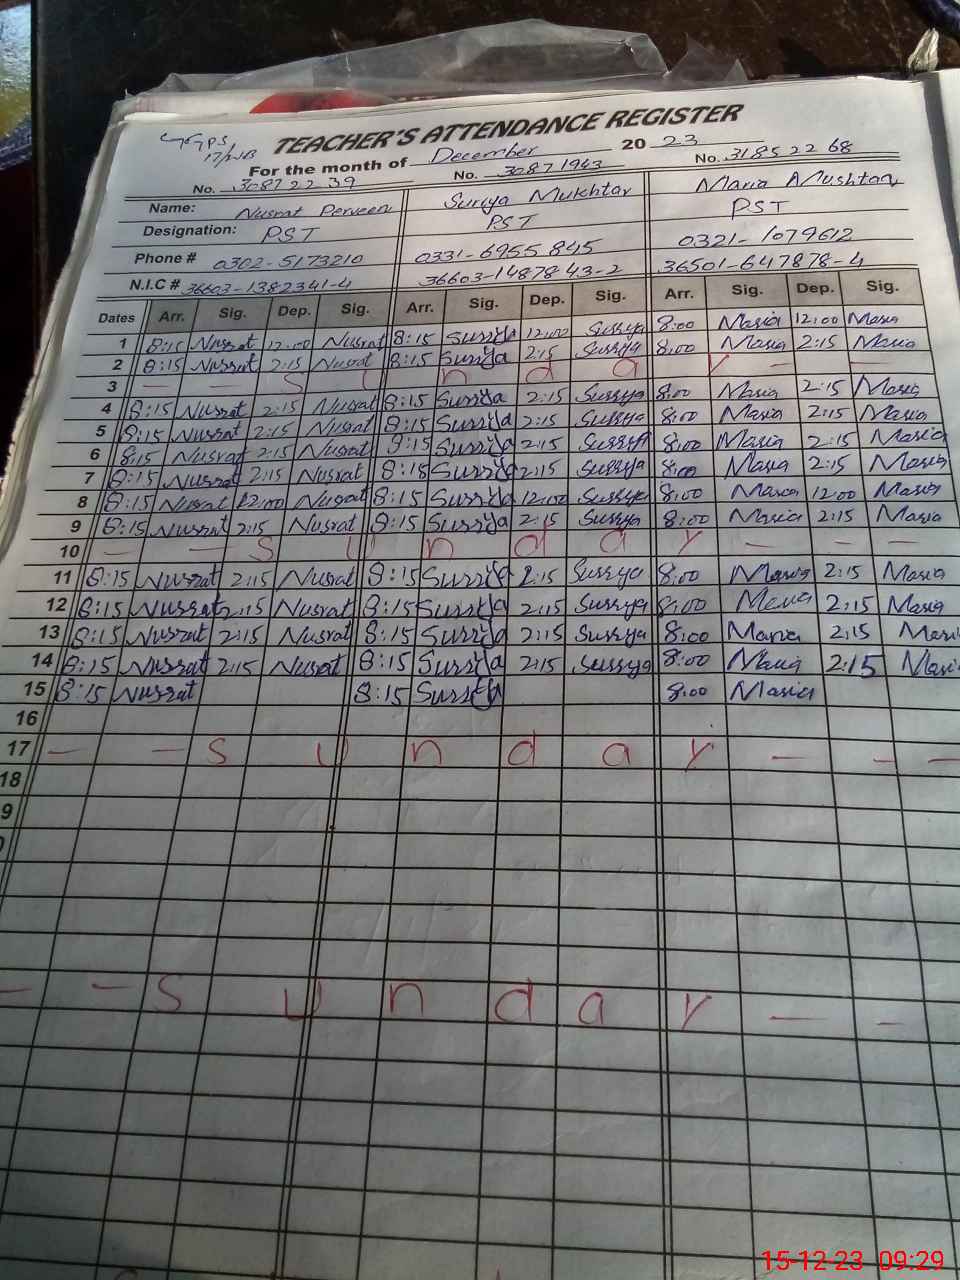 GGPS
17/WB
TEACHER'S ATTENDANCE REGISTER
For the month of December 2023
No. 30872239 No. 30871943 No. 31852268
Name: Nusrat Perveen Surrya Mukhtar Maria Mushtaq
Designation: PST PST PST
Phone # 0302-5173210 0331-6955845 0321-1079612
N.I.C # 36603-1382341-4 36603-1487843-2 36501-647878-4
Dates Arr. Sig. Dep. Sig. Arr. Sig. Dep. Sig. Arr. Sig. Dep. Sig.
1 8:15 Nusrat 12:00 Nusrat 8:15 Surrya 12:00 Surrya 8:00 Maria 12:00 Maria
2 8:15 Nusrat 2:15 Nusrat 8:15 Surrya 2:15 Surrya 8:00 Maria 2:15 Maria
3 - - S u n d a y - - -
4 8:15 Nusrat 2:15 Nusrat 8:15 Surrya 2:15 Surrya 8:00 Maria 2:15 Maria
5 8:15 Nusrat 2:15 Nusrat 8:15 Surrya 2:15 Surrya 8:00 Maria 2:15 Maria
6 8:15 Nusrat 2:15 Nusrat 8:15 Surrya 2:15 Surrya 8:00 Maria 2:15 Maria
7 8:15 Nusrat 2:15 Nusrat 8:15 Surrya 2:15 Surrya 8:00 Maria 2:15 Maria
8 8:15 Nusrat 12:00 Nusrat 8:15 Surrya 12:00 Surrya 8:00 Maria 12:00 Maria
9 8:15 Nusrat 2:15 Nusrat 8:15 Surrya 2:15 Surrya 8:00 Maria 2:15 Maria
10 - - S u n d a y - - -
11 8:15 Nusrat 2:15 Nusrat 8:15 Surrya 2:15 Surrya 8:00 Maria 2:15 Maria
12 8:15 Nusrat 2:15 Nusrat 8:15 Surrya 2:15 Surrya 8:00 Maria 2:15 Maria
13 8:15 Nusrat 2:15 Nusrat 8:15 Surrya 2:15 Surrya 8:00 Maria 2:15 Mari
14 8:15 Nusrat 2:15 Nusrat 8:15 Surrya 2:15 Surrya 8:00 Maria 2:15 Mari
15 8:15 Nusrat 8:15 Surrya 8:00 Maria
16
17 - - S u n d a y - - -
18
9
- - S u n d a y - -
15-12-23 09:29